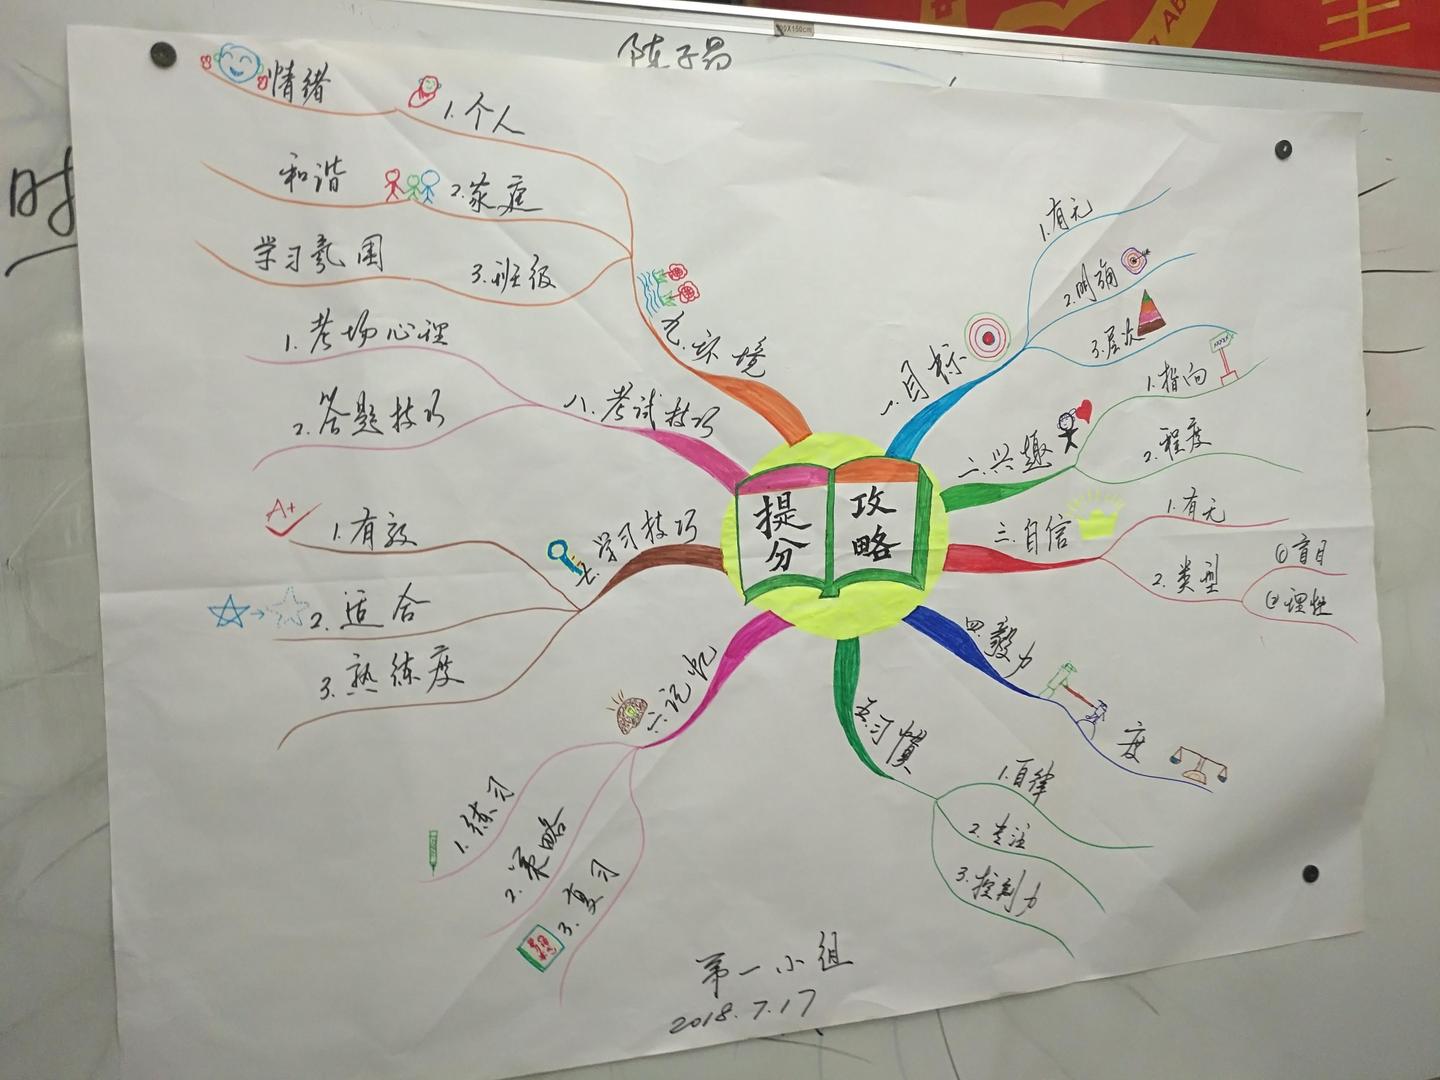 陈子昂
时
提分
攻略
一.目标
1.有无
2.明确
3.层次
二.兴趣
1.指向
2.程度
三.自信
1.有无
2.类型
①盲目
②理性
四.毅力
度
五.习惯
1.自律
2.专注
3.控制力
六.记忆
1.练习
2.策略
3.复习
七.学习技巧
1.有效
A+
2.适合
3.熟练度
八.考试技巧
1.考场心理
2.答题技巧
九.环境
1.个人
情绪
2.家庭
和谐
3.班级
学习氛围
第一小组
2018.7.17